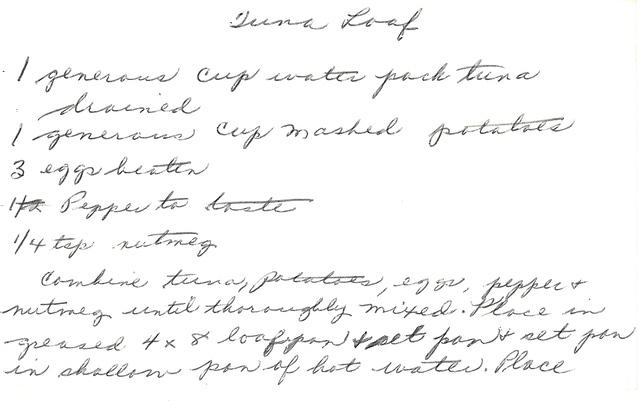 Tuna Loaf
1 generous cup water pack tuna
drained
1 generous cup mashed potatoes
3 eggs beaten
Pepper to taste
1/4 tsp nutmeg
Combine tuna, potatoes, eggs, pepper &
nutmeg until thoroughly mixed. Place in
greased 4 x 8 loaf pan & set pan & set pan
in shallow pan of hot water. Place